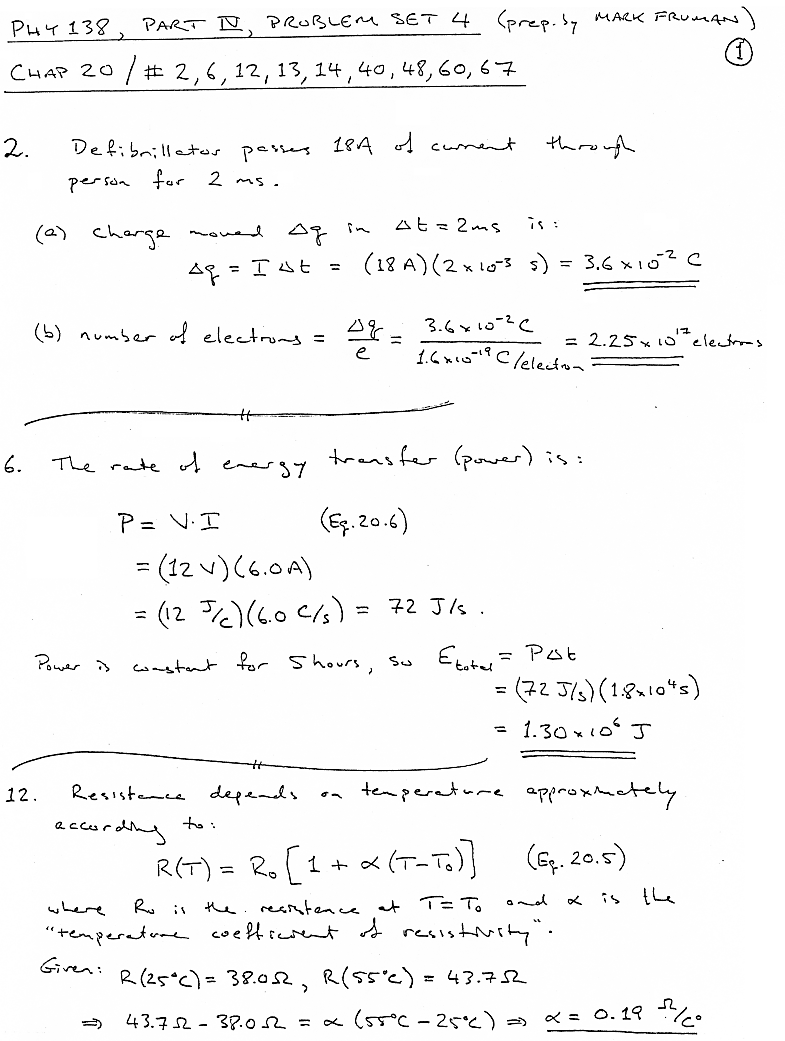 PHY 138, PART IV, PROBLEM SET 4 (prep. by MARK FRUMAN)
①
CHAP 20 / # 2, 6, 12, 13, 14, 40, 48, 60, 67
2. Defibrillator passes 18A of current through
person for 2 ms.
(a) charge moved Δq in Δt = 2ms is:
Δq = I Δt = (18 A)(2 × 10⁻³ s) = 3.6 × 10⁻² C
(b) number of electrons = Δq/e = 3.6 × 10⁻² C / 1.6 × 10⁻¹⁹ C/electron = 2.25 × 10¹⁷ electrons
6. The rate of energy transfer (power) is:
P = V·I (Eq. 20.6)
= (12 V)(6.0 A)
= (12 J/C)(6.0 C/s) = 72 J/s.
Power is constant for 5 hours, so E_total = PΔt
= (72 J/s)(1.8 × 10⁴ s)
= 1.30 × 10⁶ J
12. Resistance depends on temperature approximately
according to:
R(T) = R₀ [1 + α (T-T₀)] (Eq. 20.5)
where R₀ is the resistance at T = T₀ and α is the
"temperature coefficient of resistivity".
Given: R(25°C) = 38.0 Ω, R(55°C) = 43.7 Ω
⇒ 43.7 Ω - 38.0 Ω = α (55°C - 25°C) ⇒ α = 0.19 Ω/C°